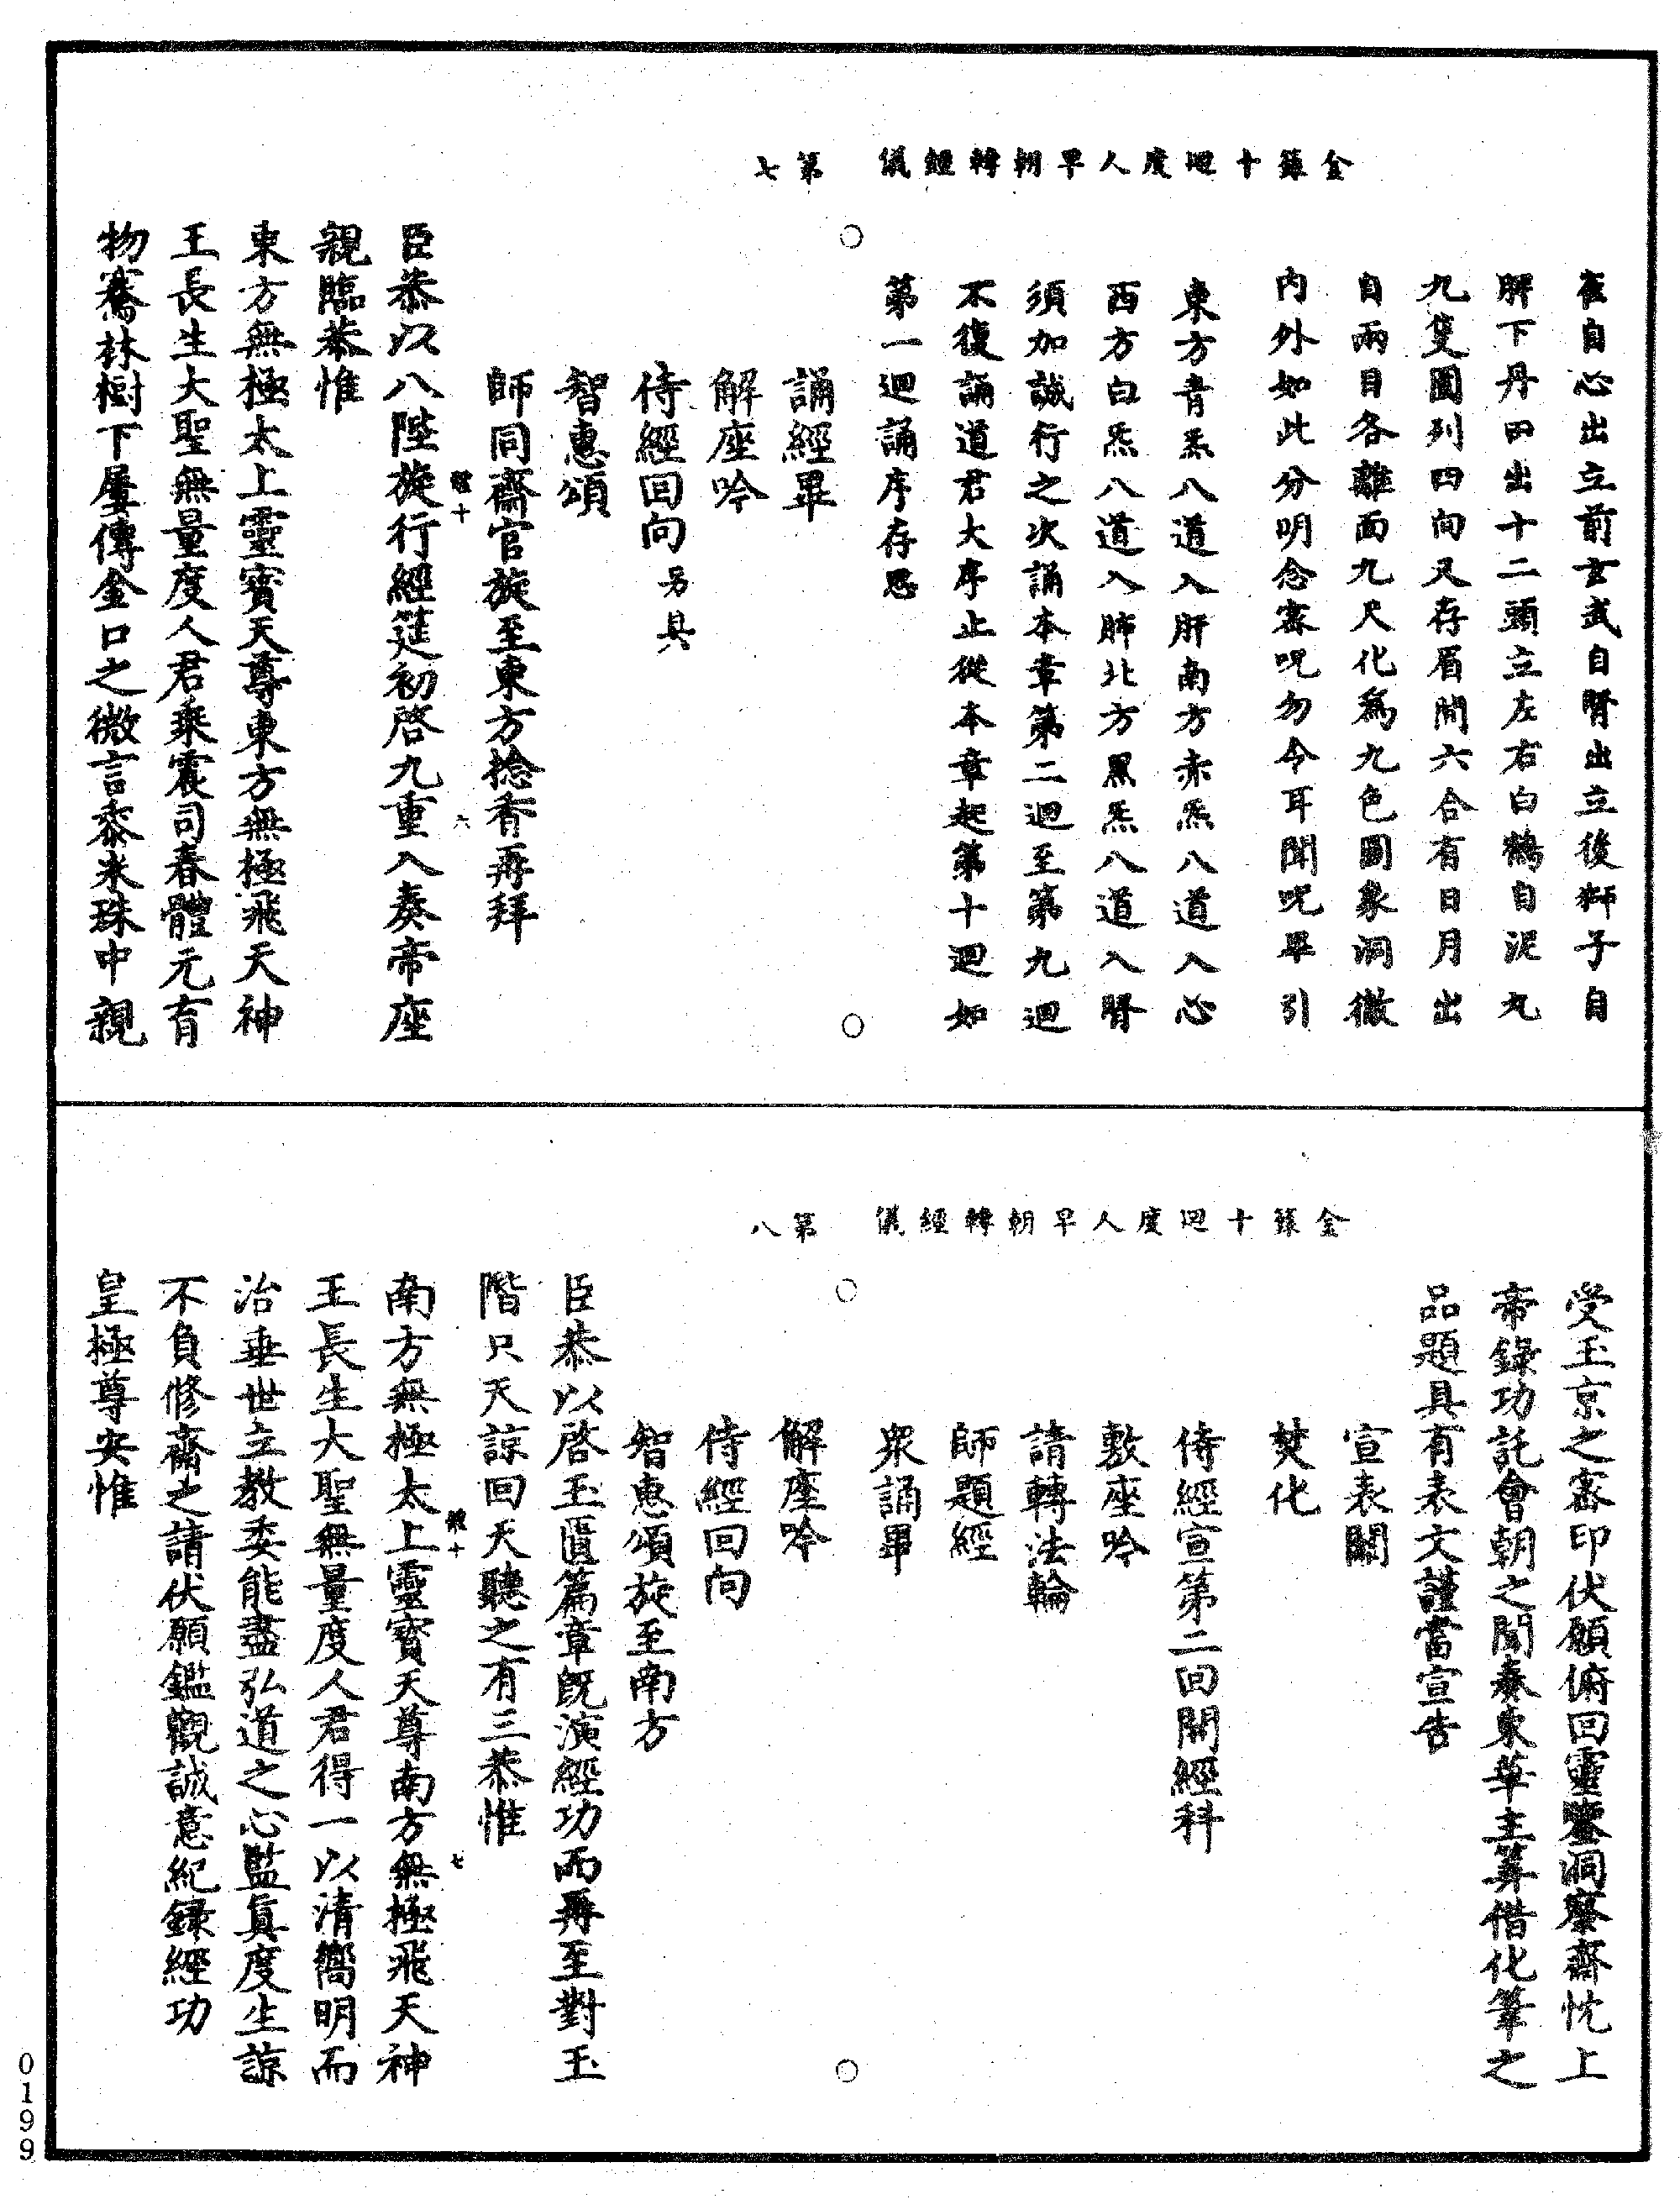 金籙十迴度人早朝轉經儀　第七
雀自心出立前玄武自腎出立後獅子自
脾下丹田出十二頭立左右白鶴自泥丸
九隻圍列四向又存眉間六合有日月出
自兩目各離面九尺化為九色圓象洞徹
內外如此分明念密呪勿令耳聞呪畢引
東方青炁八道入肝南方赤炁八道入心
西方白炁八道入肺北方黑炁八道入腎
須加誠行之次誦本章第二迴至第九迴
不復誦道君大序止從本章起第十迴如
第一迴誦序存思
誦經畢
解座吟
侍經回向另具
智惠頌
師同齋官旋至東方捻香再拜
臣恭以八陛旋行經筵初啓九重入奏帝座
親臨恭惟
東方無極太上靈寶天尊東方無極飛天神
王長生大聖無量度人君乘震司春體元育
物騫林樹下屢傳金口之微言黍米珠中親
金籙十迴度人早朝轉經儀　第八
受玉京之密印伏願俯回靈鑒洞察齋忱上
帝錄功託會朝之聞奏東華主筭借化筆之
品題具有表文謹當宣告
宣表關
焚化
侍經宣第二回開經科
敷座吟
請轉法輪
師題經
眾誦畢
解座吟
侍經回向
智惠頌旋至南方
臣恭以啓玉匱篇章既演經功而再至對玉
階只天諒回天聽之有三恭惟
南方無極太上靈寶天尊南方無極飛天神
王長生大聖無量度人君得一以清嚮明而
治垂世立教委能盡弘道之心監真度生諒
不負修齋之請伏願鑑觀誠意紀錄經功
皇極尊安惟
0199